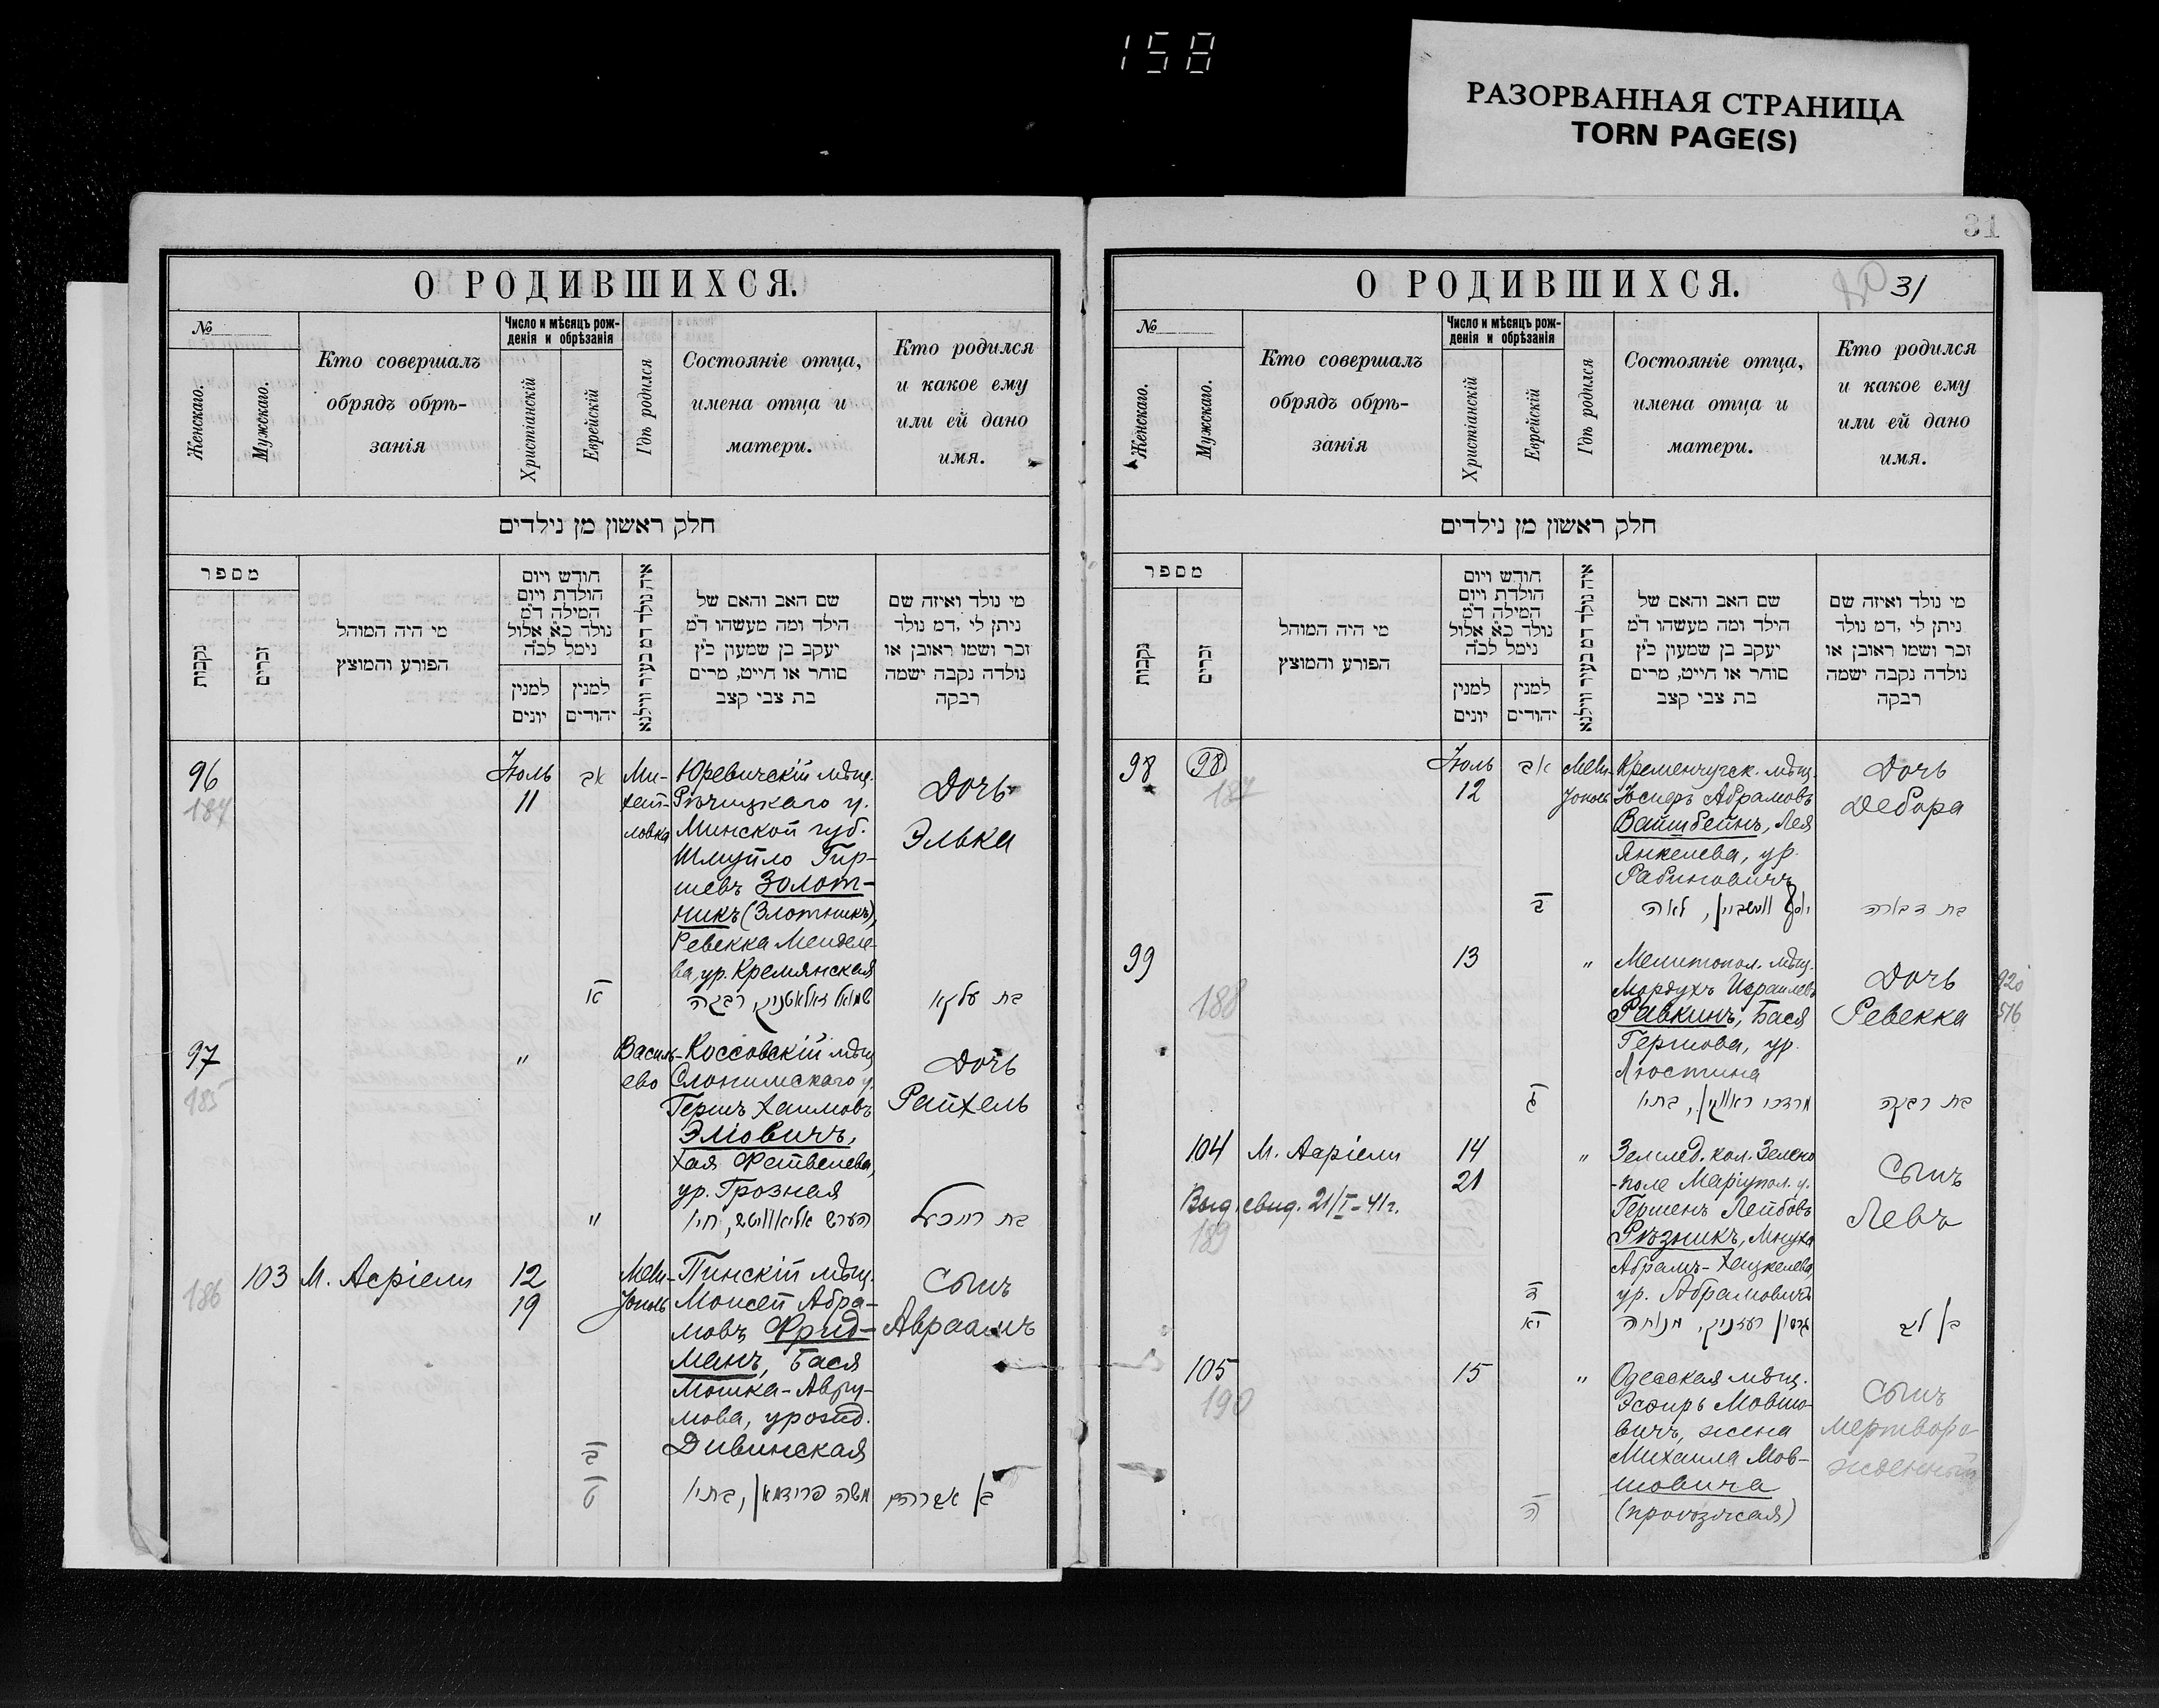 158
РАЗОРВАННАЯ СТРАНИЦА
TORN PAGE(S)
О РОДИВШИХСЯ.
№
Женскаго.
Мужскаго.
Кто совершалъ
обрядъ обрѣ-
занія
Число и мѣсяцъ рож-
денія и обрѣзанія
Христіанскій
Еврейскій
Гдѣ родился
Состояніе отца,
имена отца и
матери.
Кто родился
и какое ему
или ей дано
имя.
חלק ראשון מן נילדים
מספר
נקבות
זכרים
מי היה המוהל
הפורע והמוצץ
חודש ויום
הולדת ויום
המילה ד״מ
נולד כ״א אלול
נימל לכ״ה
למנין
יונים
למנין
יהודים
איה נולד דמ בעיר ווילנא
שם האב והאם של
הילד ומה מעשהו ד״מ
יעקב בן שמעון כ״ץ
סוחר או חייט, מרים
בת צבי קצב
מי נולד ואיזה שם
ניתן לי ,דמ נולד
זכר ושמו ראובן או
נולדה נקבה ישמה
רבקה
96
184
Іюль
11
אב
Ми-
хай-
ловка
Юревичскій мѣщ.
Рѣчицкаго у.
Минской губ.
Шмуйло Гир-
шевъ Золот-
никъ (Злотникъ),
Ревекка Менделе-
ва, ур. Кремянская
Дочь
Элька
א
שמואל זאלאטניק, רבקה
בת עלקא
97
185
"
Василь-
ево
Коссовскій мѣщ
Слонимскаго у.
Гершъ Хаимовъ
Эліовичъ,
Хая Фейвелева,
ур. Грозная
Дочь
Райхель
"
בת רייכעל
186
103
М. Асріели
12
19
Мели-
тополь
Пинскій мѣщ.
Моисей Абра-
мовъ Фрид-
манъ, Бася
Мошка-Авру-
мова, урожд.
Дивинская
Сынъ
Авраамъ
ב
ט
משה פרידמאן, בתי׳
בן אברהם
31
О РОДИВШИХСЯ.
31
№
Женскаго.
Мужскаго.
Кто совершалъ
обрядъ обрѣ-
занія
Число и мѣсяцъ рож-
денія и обрѣзанія
Христіанскій
Еврейскій
Гдѣ родился
Состояніе отца,
имена отца и
матери.
Кто родился
и какое ему
или ей дано
имя.
חלק ראשון מן נילדים
מספר
נקבות
זכרים
מי היה המוהל
הפורע והמוצץ
חודש ויום
הולדת ויום
המילה ד״מ
נולד כ״א אלול
נימל לכ״ה
למנין
יונים
למנין
יהודים
איה נולד דמ בעיר ווילנא
שם האב והאם של
הילד ומה מעשהו ד״מ
יעקב בן שמעון כ״ץ
סוחר או חייט, מרים
בת צבי קצב
מי נולד ואיזה שם
ניתן לי ,דמ נולד
זכר ושמו ראובן או
נולדה נקבה ישמה
רבקה
98
98
187
Іюль
12
אב
Мели-
тополь
Кременчугск. мѣщ.
Іосифъ Абрамовъ
Вайшбейнъ, Лея
Янкелева, ур.
Рабиновичъ
Дочь
Дебора
ב
יוסף ווײשביין, לאה
בת דבורה
99
188
13
"
Мелитопол. мѣщ.
Мордухъ Израилевъ
Равкинъ, Бася
Гершова, ур.
Люстина
Дочь
Ревекка
920
516
ג
מרדכי ראווקין, בתי׳
בת רבקה
104
М. Асріели
14
21
Выд. свид. 21/I-41г.
189
"
Землед. кол. Зелено
-поле Маріупол. у.
Гершенъ Лейбовъ
Рѣзникъ, Мнуха
Абрамъ-Хацкелева,
ур. Абрамовичъ
Сынъ
Левъ
ד
יא
גרשון רעזניק, מנוחה
בן לב
105
190
15
"
Одесская мѣщ.
Эсфирь Мовшо-
вичъ, жена
Михаила Мов-
шовича
(проѣзжая)
Сынъ
мертворо
жденный
ה